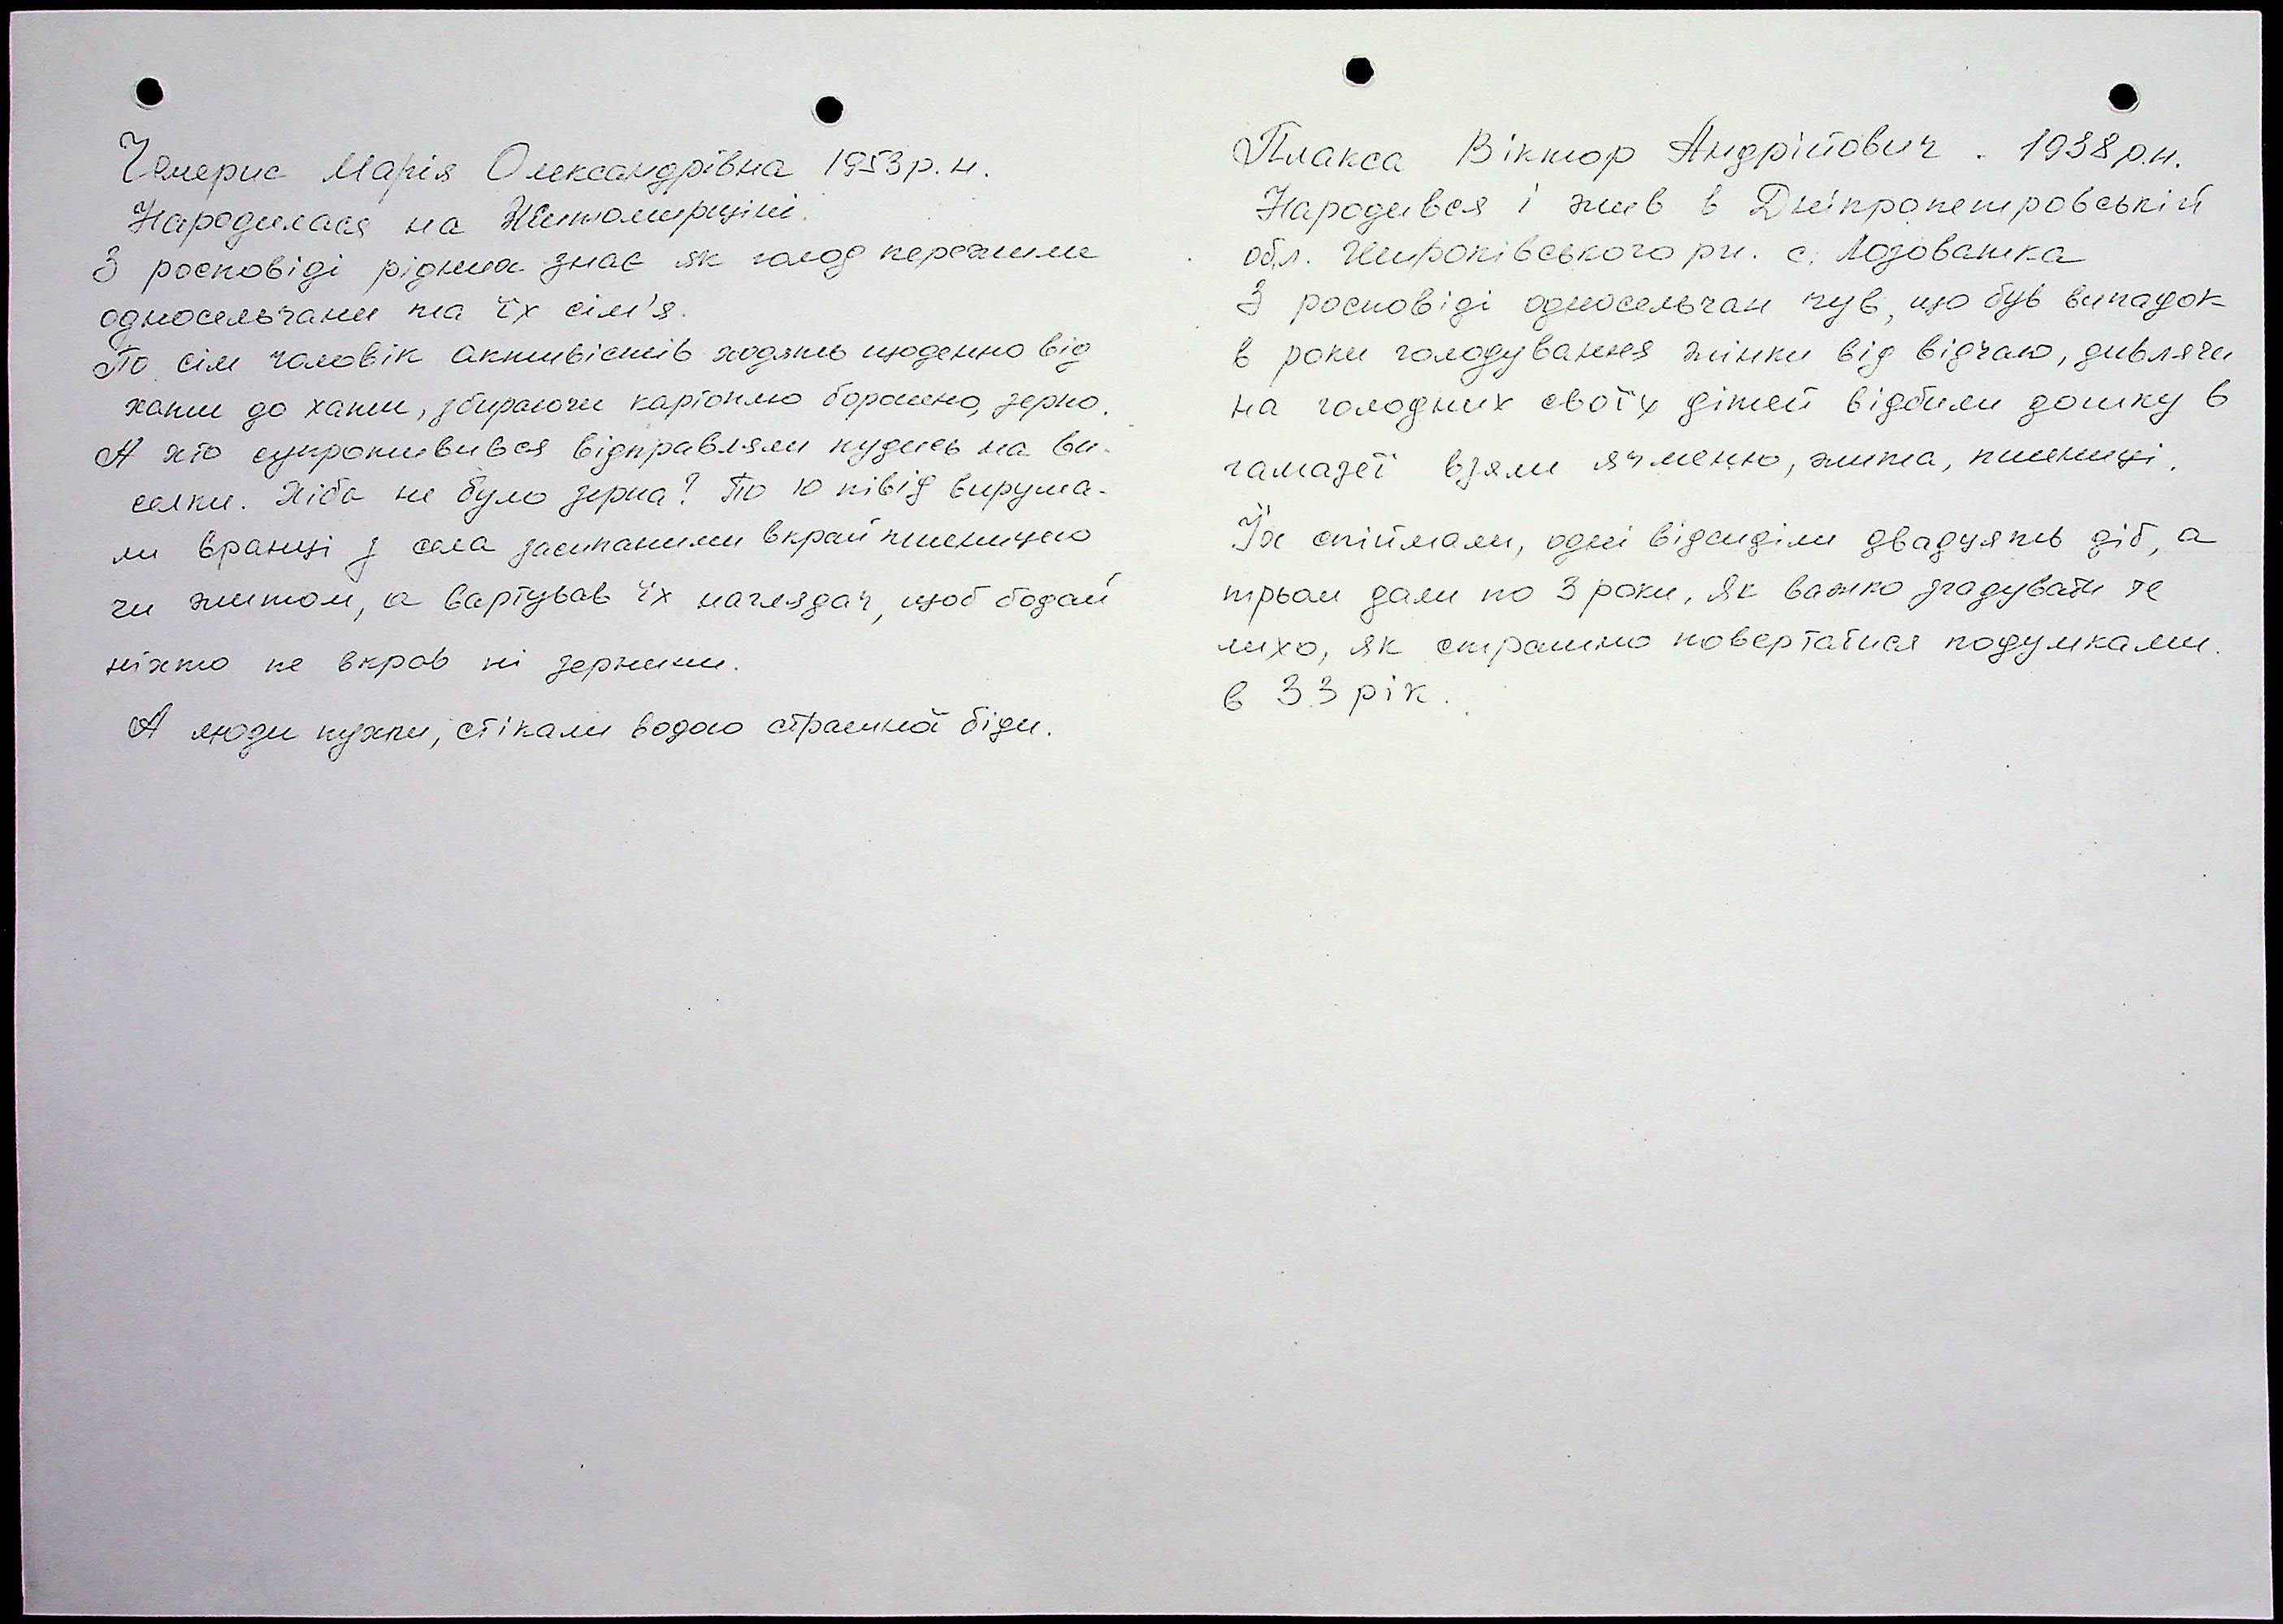 Чемерис Марія Олександрівна 1953 р. н.
Народилася на Житомирщині.
З росповіді рідних знає як голод пережили
односельчани та їх сім'я.
По сім чоловік активістів ходять щоденно від
хати до хати, збираючи картоплю борошно, зерно.
А хто супротивився відправляли кудись на ви-
селки. Хіба не було зерна? По 10 підвід вируша-
ли вранці з села засипаними вкрай пшеницею
чи житом, а вартував їх наглядач, щоб бодай
ніхто не вкрав ні зернини.
А люди пухли, стікали водою страшної біди.
Плакса Віктор Андрійович. 1938 р.н.
Народився і жив в Дніпропетровській
обл. Широківського рн. с. Лозоватка
З росповіді односельчан чув, що був випадок
в роки голодування жінки від відчаю, дивлячи
на голодних своїх дітей відбили дошку в
гамазеї взяли ячменю, жита, пшениці.
Їх спіймали, одні відсиділи двадцять діб, а
трьом дали по 3 роки, як важко згадувати те
лихо, як страшно повертатися подумками.
в 33 рік.